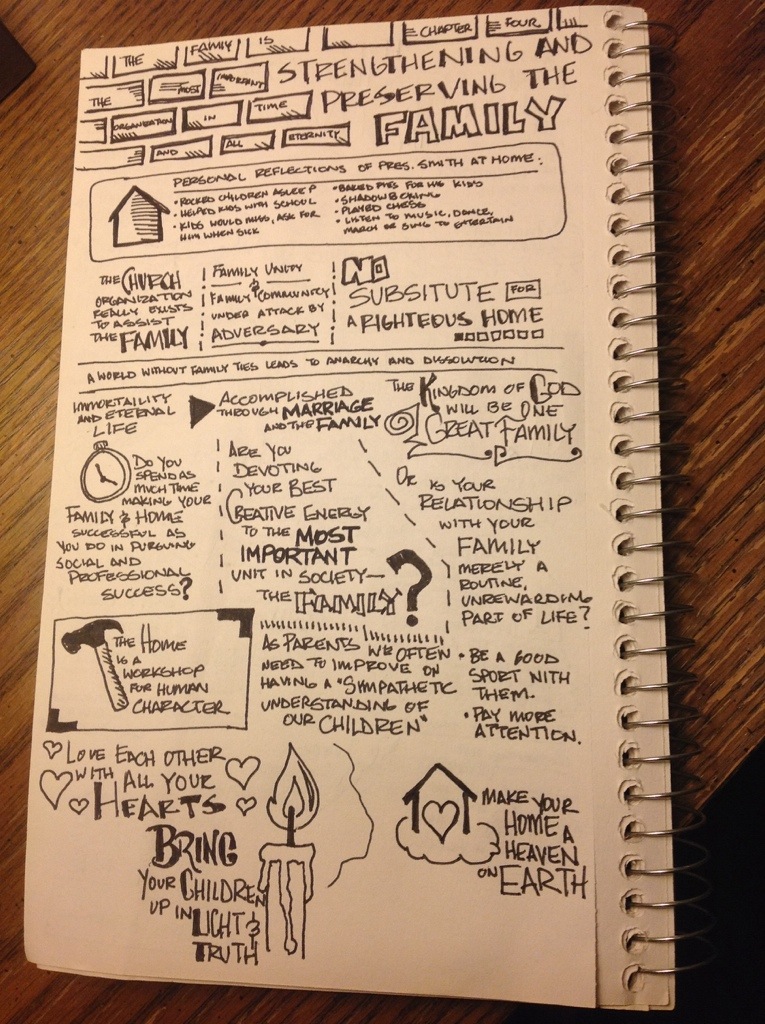 THE FAMILY IS
CHAPTER FOUR
THE MOST IMPORTANT
ORGANIZATION IN TIME
AND ALL ETERNITY
STRENGTHENING AND
PRESERVING THE
FAMILY
PERSONAL REFLECTIONS OF PRES. SMITH AT HOME:
• ROCKED CHILDREN ASLEEP
• HELPED KIDS WITH SCHOOL
• KIDS WOULD MISS, ASK FOR
HIM WHEN SICK
• BAKED PIES FOR HIS KIDS
• SHADOWBOXING
• PLAYED CHESS
• LISTEN TO MUSIC, DANCE,
MARCH OR SING TO ENTERTAIN
THE CHURCH
ORGANIZATION
REALLY EXISTS
TO ASSIST
THE FAMILY
FAMILY UNITY
&
FAMILY COMMUNITY
UNDER ATTACK BY
ADVERSARY
NO
SUBSITUTE FOR
A RIGHTEOUS HOME
A WORLD WITHOUT FAMILY TIES LEADS TO ANARCHY AND DISSOLUTION
IMMORTAILITY
AND ETERNAL
LIFE
ACCOMPLISHED
THROUGH MARRIAGE
AND THE FAMILY
THE KINGDOM OF GOD
WILL BE ONE
GREAT FAMILY
DO YOU
SPEND AS
MUCH TIME
MAKING YOUR
FAMILY & HOME
SUCCESSFUL AS
YOU DO IN PURSUING
SOCIAL AND
PROFESSIONAL
SUCCESS?
ARE YOU
DEVOTING
YOUR BEST
CREATIVE ENERGY
TO THE MOST
IMPORTANT
UNIT IN SOCIETY—
THE FAMILY?
OR IS YOUR
RELATIONSHIP
WITH YOUR
FAMILY
MERELY A
ROUTINE,
UNREWARDING
PART OF LIFE?
THE HOME
IS A
WORKSHOP
FOR HUMAN
CHARACTER
AS PARENTS WE OFTEN
NEED TO IMPROVE ON
HAVING A "SYMPATHETIC
UNDERSTANDING OF
OUR CHILDREN"
• BE A GOOD
SPORT WITH
THEM.
• PAY MORE
ATTENTION.
LOVE EACH OTHER
WITH ALL YOUR
HEARTS
BRING
YOUR CHILDREN
UP IN LIGHT &
TRUTH
MAKE YOUR
HOME A
HEAVEN
ON EARTH